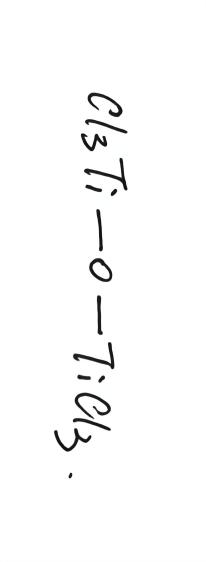 Cl3Ti—O—TiCl3.